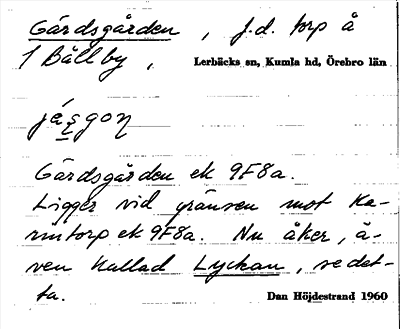 Gärdsgården, f.d. torp å
1 Bällby,
Lerbäcks sn, Kumla hd, Örebro län
Gärdsgården ek 9F8a.
Ligger vid gränsen mot Ka-
rintorp ek 9F8a. Nu åker, ä-
ven kallad Lyckan, se det-
ta.
Dan Höjdestrand 1960